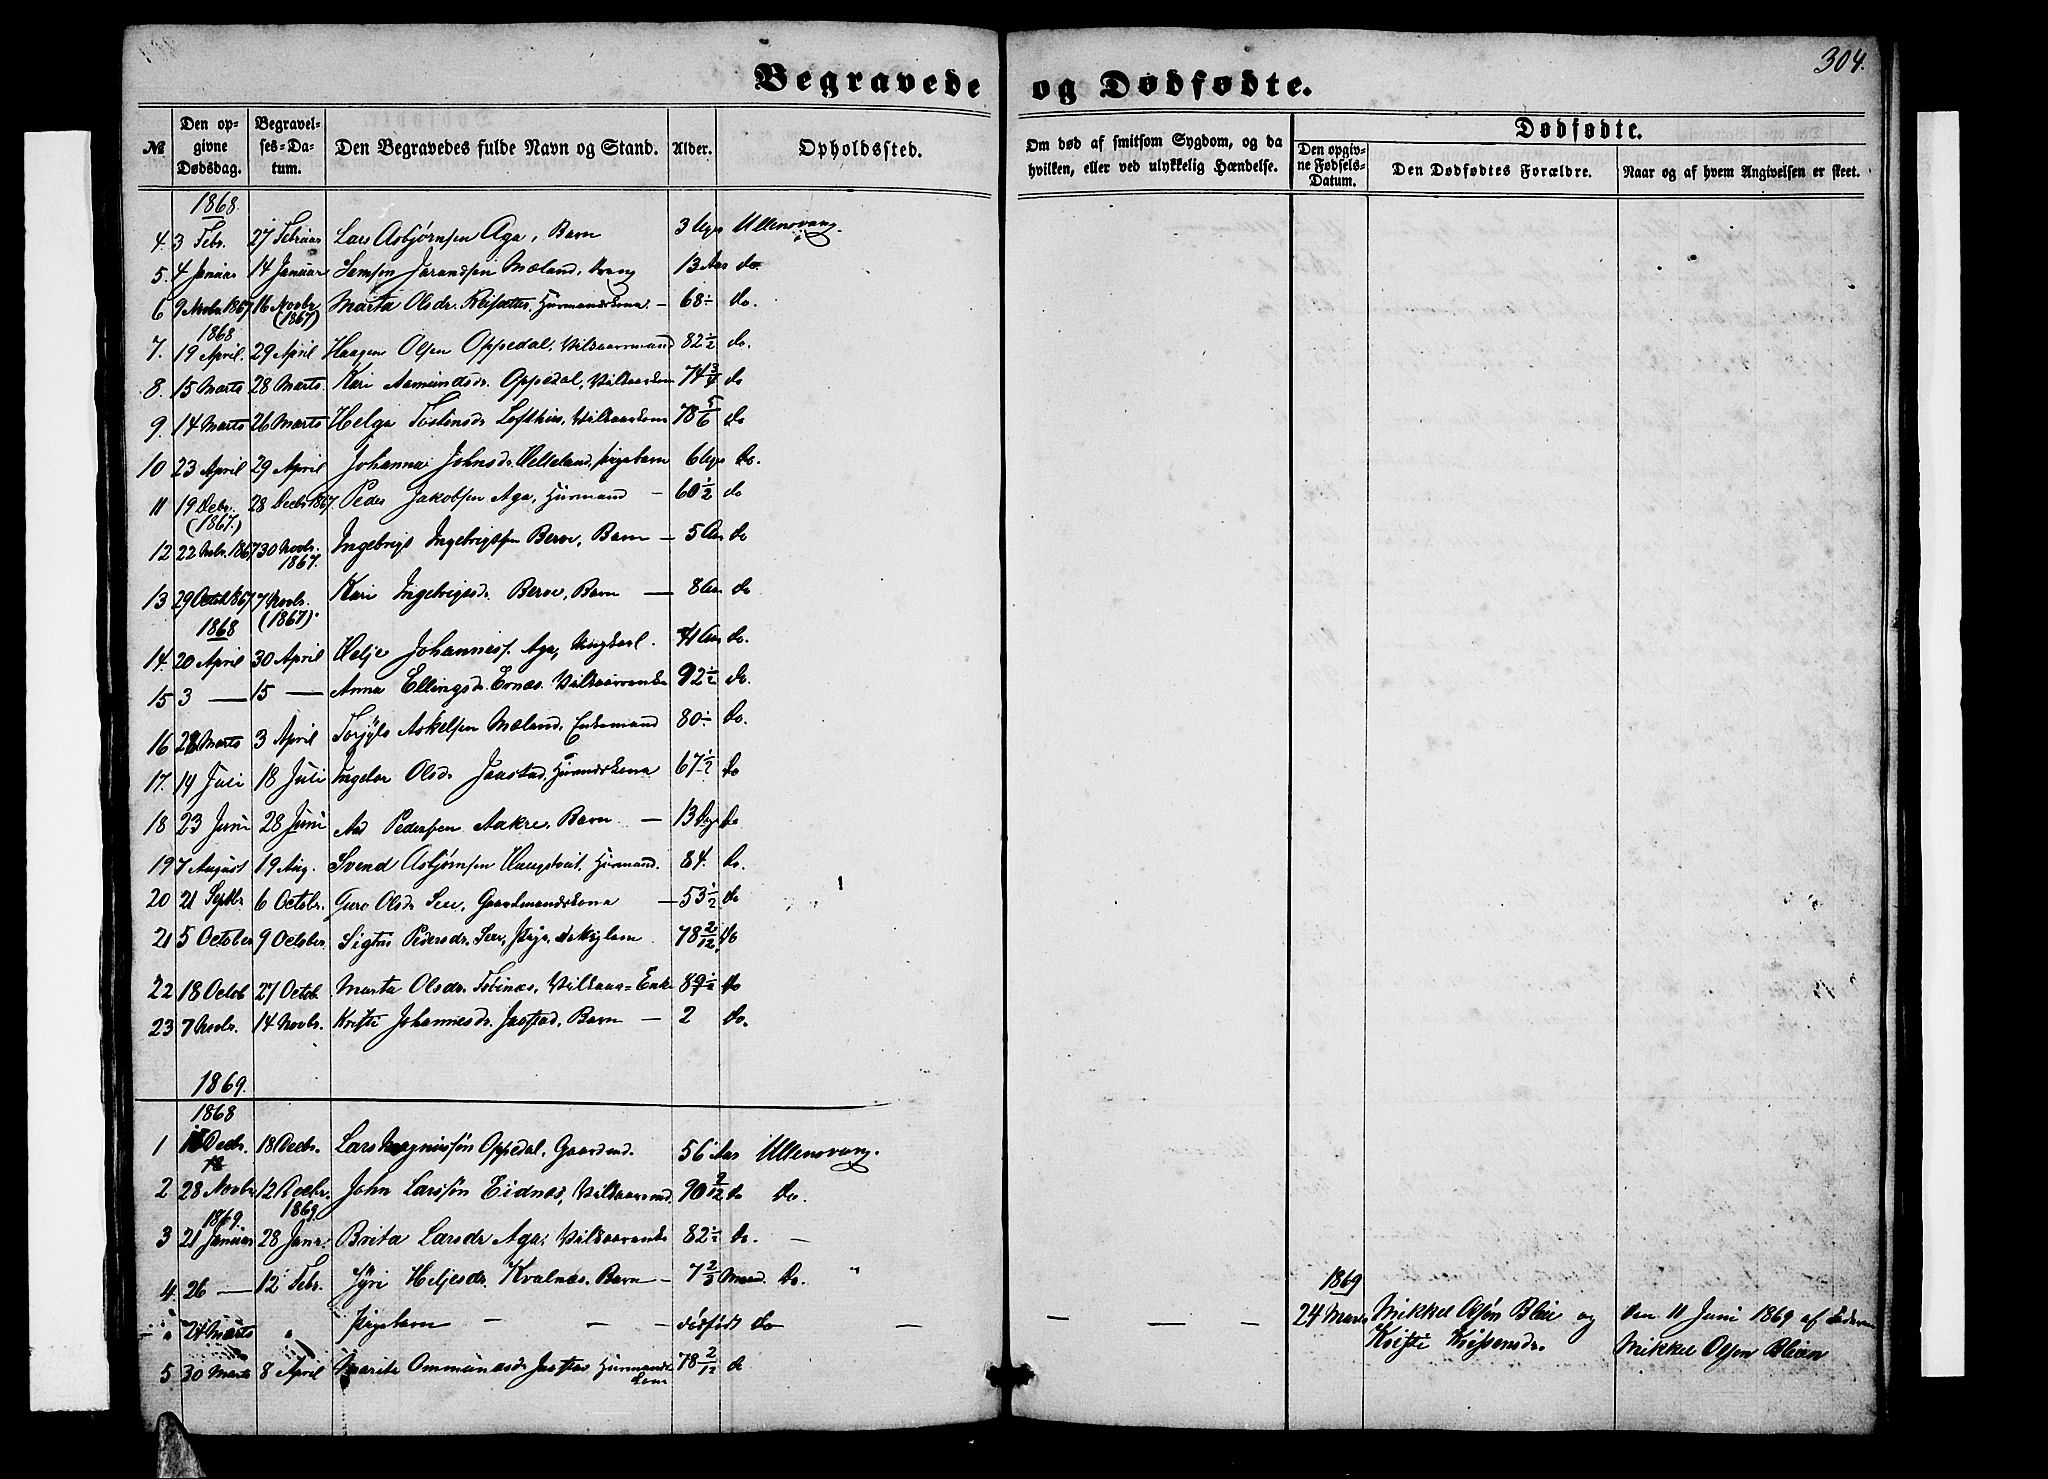 304.
Begravede og Dødfødte.
№ Den opgivne Dødsdag. Begravelses-Datum. Den Begravedes fulde Navn og Stand. Alder. Opholdssted.
Om død af smitsom Sygdom, og da hvilken, eller ved ulykkelig Hændelse.
Dødfødte.
Den opgivne Fødsels-Datum. Den Dødfødtes Forældre. Naar og af hvem Angivelsen er skeet.
1868.
4 3 Febr. 27 Februar Lars Asbjørnsen Aga, Barn 3 Uger Ullensvang.
5. 4 Januar 14 Januar Samson Jarandsen Mæland, 13 Aar do.
6 9 Novbr. 1867 16 Novbr (1867) Marta Olsdr. Huusmandskona - 68 do.
1868
7. 19 April. 29 April Haagen Olsen Oppedal, Vilkaarsmand 82½ do.
8. 15 Marts 28 Marts Kari Aamundsdr. Oppedal, Vilkaarskon 74¾ do
9. 14 Marts 26 Marts Helga Tostensdr Lofthus, Vilkaarskona 78 5/6 do
10 23 April 29 April Johanna Johnsdr. Velleland, Pigebarn 6 Uger do.
11 19 Debr. (1867.) 28 Decbr 1867. Peder Jakobsen Aga, Huusmand - 60½ do
12 22 Nobr. 1867 30 Novbr. 1867. Ingebrigt Ingebrigtsen Berve, Barn - 5 Aar do
13 29 Octob 1867 7 Novbr. (1867). Kari Ingebrigtsdr. Berve, Barn — 8 Aar do
1868
14. 20 April 30 April Helje Johanness. Aga, Ungkarl. 41 Aar do.
15 3 — 15 — Anna Ellingsdr. Ernæs. Vilkaarsenke 92½ do.
16 28 Marts 3 April Torgils Askelsen Mæland, Enkemand 80 do.
17. 14 Juli 18 Juli Ingebor Olsdr Jaastad, Huusmandskona 67½ do
18 23 Juni 28 Juni Aad Pedersen Aakre, Barn — 13 Dage do
19 7 August 19 Aug. Svend Asbjørnsen Haugstveit, Huusmand. 84. do.
20 21 Septbr 6 Octobr. Guro Olsdr Sexe, Gaardmandskona — 53½ do
21 5 October 9 October. Sigtrud Pedersdr. Sexe, Pige, 78 2/12 do
22 18 Octob 27 Octob. Marta Olsdr. Vilkaars-Enk 89½ do
23 7 Novbr. 14 Novbr. Kristi Johannesdr. Jaastad, Barn — 2 do.
1869.
1868
1 Decbr. 18 Decbr. Lars Magnussøn Oppedal, Gaardmd. 56 Aar Ullensvang.
2 28 Novbr 12 Decbr. John Larssøn Eidnæs, Vilkaarsmd. 90 9/12 do do.
1869. 1869.
3 21 Januar 28 Janr. Brita Larsdr Aga, Vilkaarsenke 82½ do. —
4. 26 — 12 Febr. Jyri Heljesdr. Kvalnæs, Barn - 7 2/3 Maad. do. "
24 Marts Pigebarn — — dødfødt do — — — —
1869
24 Marts Mikkel Olsøn Bleie og Den 11 Juni 1869 af Faderen
Kristi Mikkel Olsøn Bleien
5 30 Marts 8 April Marita Ommundsdr Jaastad Huusmandskona 78 2/12 do